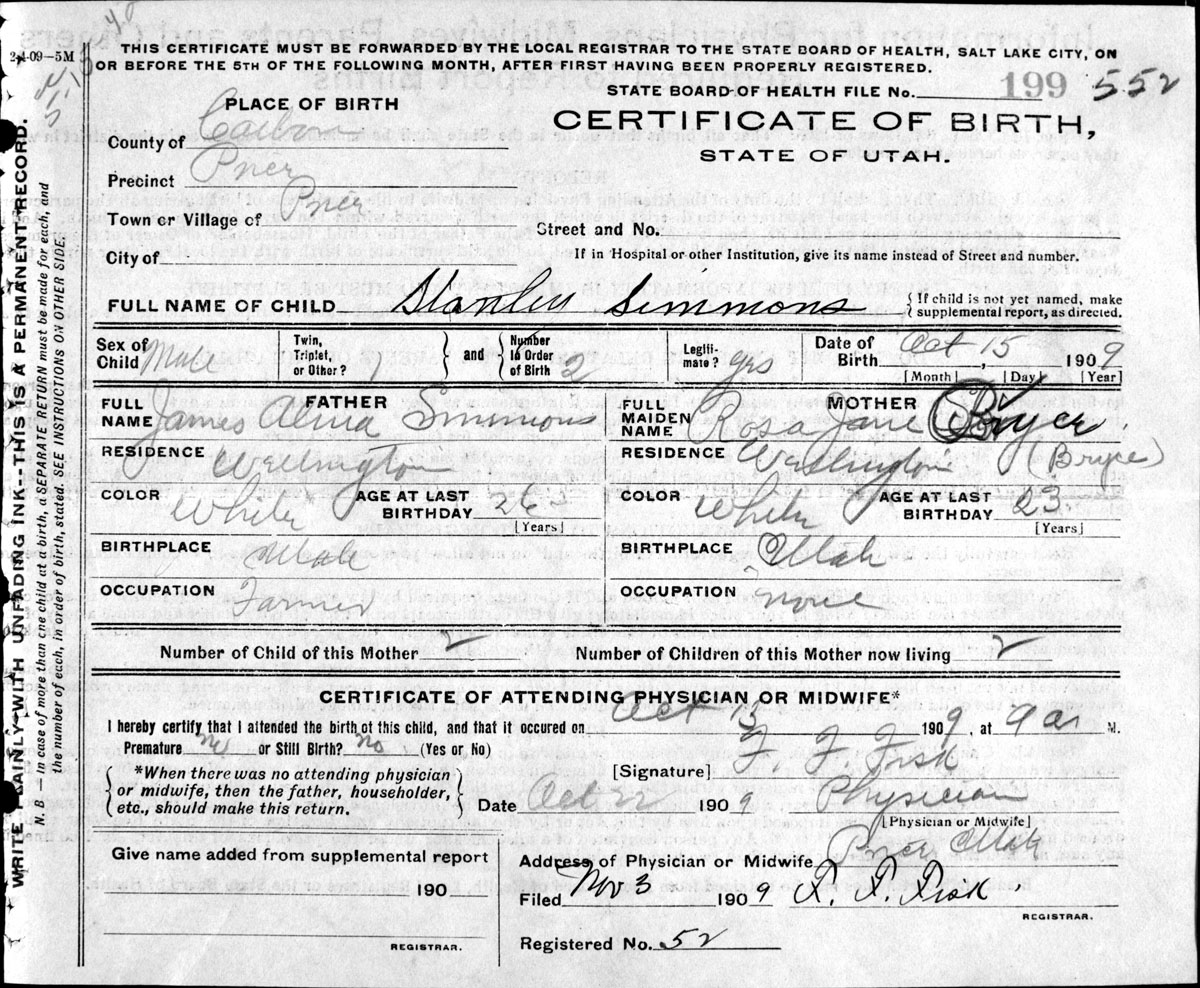 2-4-09—5M
THIS CERTIFICATE MUST BE FORWARDED BY THE LOCAL REGISTRAR TO THE STATE BOARD OF HEALTH, SALT LAKE CITY, ON
OR BEFORE THE 5TH OF THE FOLLOWING MONTH, AFTER FIRST HAVING BEEN PROPERLY REGISTERED.
STATE BOARD OF HEALTH FILE No. 199 552
PLACE OF BIRTH
CERTIFICATE OF BIRTH,
STATE OF UTAH.
County of Carbon
Precinct Price
Town or Village of Price
Street and No.
City of
If in Hospital or other Institution, give its name instead of Street and number.
FULL NAME OF CHILD Stanley Simmons { If child is not yet named, make
supplemental report, as directed.
Sex of Child Male Twin, Triplet, or Other? 1 } and { Number in Order of Birth 2 Legitimate? yrs Date of Birth Oct 15, 1909
[Month] [Day] [Year]
FATHER
FULL NAME James Alma Simmons
MOTHER
FULL MAIDEN NAME Rosa Jane Bryce
RESIDENCE Wellington
RESIDENCE Wellington (Bryce)
COLOR White AGE AT LAST BIRTHDAY 26
[Years]
COLOR White AGE AT LAST BIRTHDAY 23
[Years]
BIRTHPLACE Utah
BIRTHPLACE Utah
OCCUPATION Farmer
OCCUPATION none
Number of Child of this Mother 2 Number of Children of this Mother now living 2
CERTIFICATE OF ATTENDING PHYSICIAN OR MIDWIFE*
I hereby certify that I attended the birth of this child, and that it occured on Oct 15 1909, at 9 a M.
Premature no or Still Birth? no (Yes or No)
[Signature] F. F. Fisk
{ *When there was no attending physician
or midwife, then the father, householder,
etc., should make this return. }
Date Oct 22 1909 Physician
[Physician or Midwife]
Give name added from supplemental report
190
REGISTRAR.
Address of Physician or Midwife Price Utah
Filed Nov 3 1909 F. F. Fisk
REGISTRAR.
Registered No. 52
WRITE PLAINLY WITH UNFADING INK--THIS IS A PERMANENT RECORD.
N. B.—In case of more than one child at a birth, a SEPARATE RETURN must be made for each, and
the number of each, in order of birth, stated. SEE INSTRUCTIONS ON OTHER SIDE.